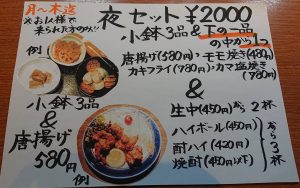 月〜木迄
※お1人様で
来られた方のみ!!
夜セット¥2000
小鉢3品&下の一品
の中から1つ
唐揚げ(580円)・モモ焼き(480円)
カキフライ(780円)・カマ塩焼き
(780円)
&
生中(450円)なら2杯
ハイボール(450円)
酎ハイ(420円)
焼酎(450円以下)
なら3杯
例
小鉢3品
&
唐揚げ
580円
例